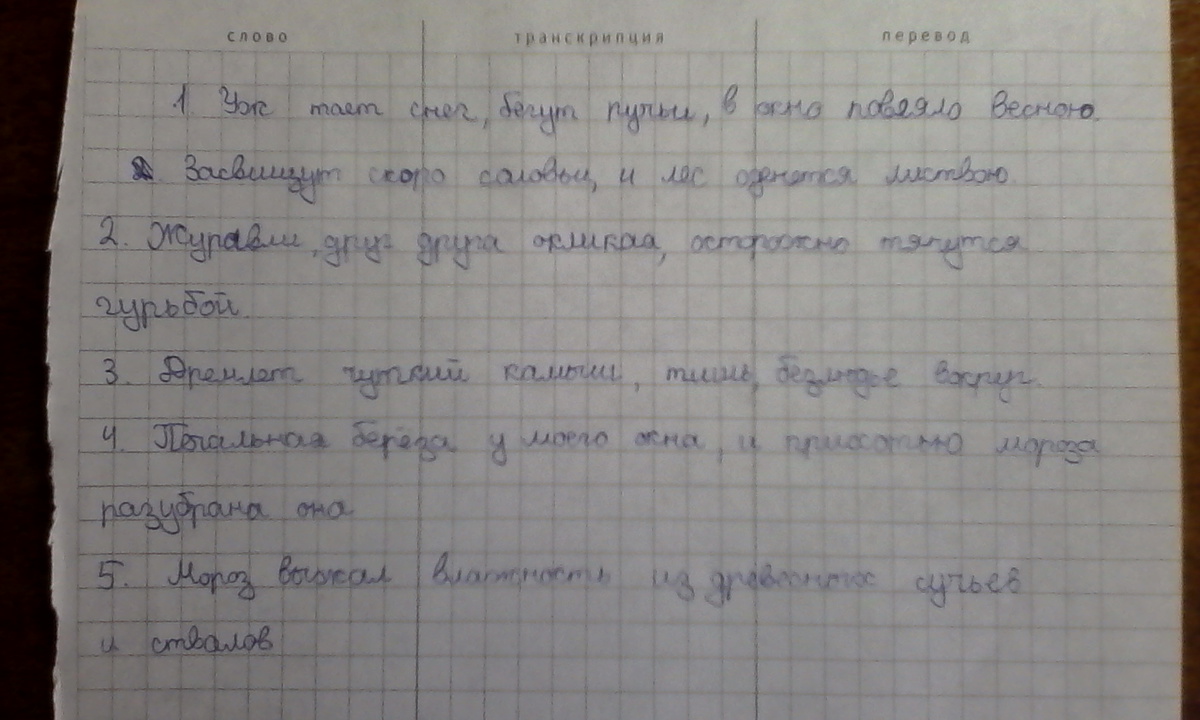 слово транскрипция перевод
1. Уж тает снег, бегут ручьи, в окно повеяло весною.
Засвищут скоро соловьи, и лес оденется листвою.
2. Журавли, друг друга окликая, осторожно тянутся
гурьбой.
3. Дремлет чуткий камыш, тишь, безлюдье вокруг.
4. Печальная берёза у моего окна, и прихотью мороза
разубрана она
5. Мороз выжал влажность из древесных сучьев
и стволов